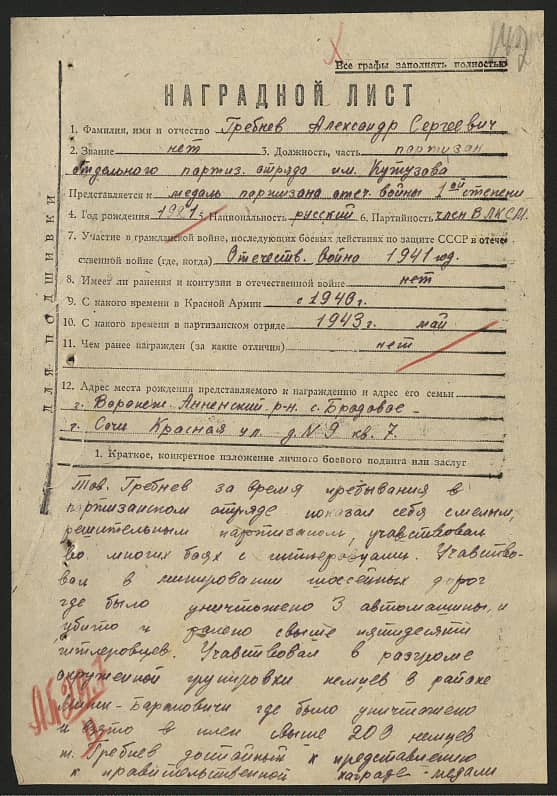 142
Все графы заполнять полностью
НАГРАДНОЙ ЛИСТ
1. Фамилия, имя и отчество Гребнев Александр Сергеевич
2. Звание нет 3. Должность, часть партизан
отдельного партиз. отряда им. Кутузова
Представляется к медаль партизана отеч. войны 1ой степени
4. Год рождения 1921 5. Национальность русский 6. Партийность член ВЛКСМ
7. Участие в гражданской войне, последующих боевых действиях по защите СССР в отече-
ственной войне (где, когда) Отечеств. война 1941 год.
8. Имеет ли ранения и контузии в отечественной войне нет
9. С какого времени в Красной Армии с 1940 г.
10. С какого времени в партизанском отряде 1943 г. май
11. Чем ранее награжден (за какие отличия) нет
12. Адрес места рождения представляемого к награждению и адрес его семьи
г. Воронеж. Анненский р-н с. Бродовое
г. Сочи Красная ул. д. №9 кв. 7.
1. Краткое, конкретное изложение личного боевого подвига или заслуг
Тов. Гребнев за время пребывания в
партизанском отряде показал себя смелым,
решительным партизаном, учавствовал
во многих боях с гитлеровцами. Учавство-
вал в минировании шоссейных дорог
где было уничтожено 3 автомашины, и
убито и ранено свыше пятидесяти
гитлеровцев. Учавствовал в разгроме
окруженной групировки немцев в районе
Минск-Барановичи где было уничтожено
и взято в плен свыше 200 немцев
т. Гребнев достайный к представлению
к правительственной награде - медали
ДЛЯ ПОДШИВКИ